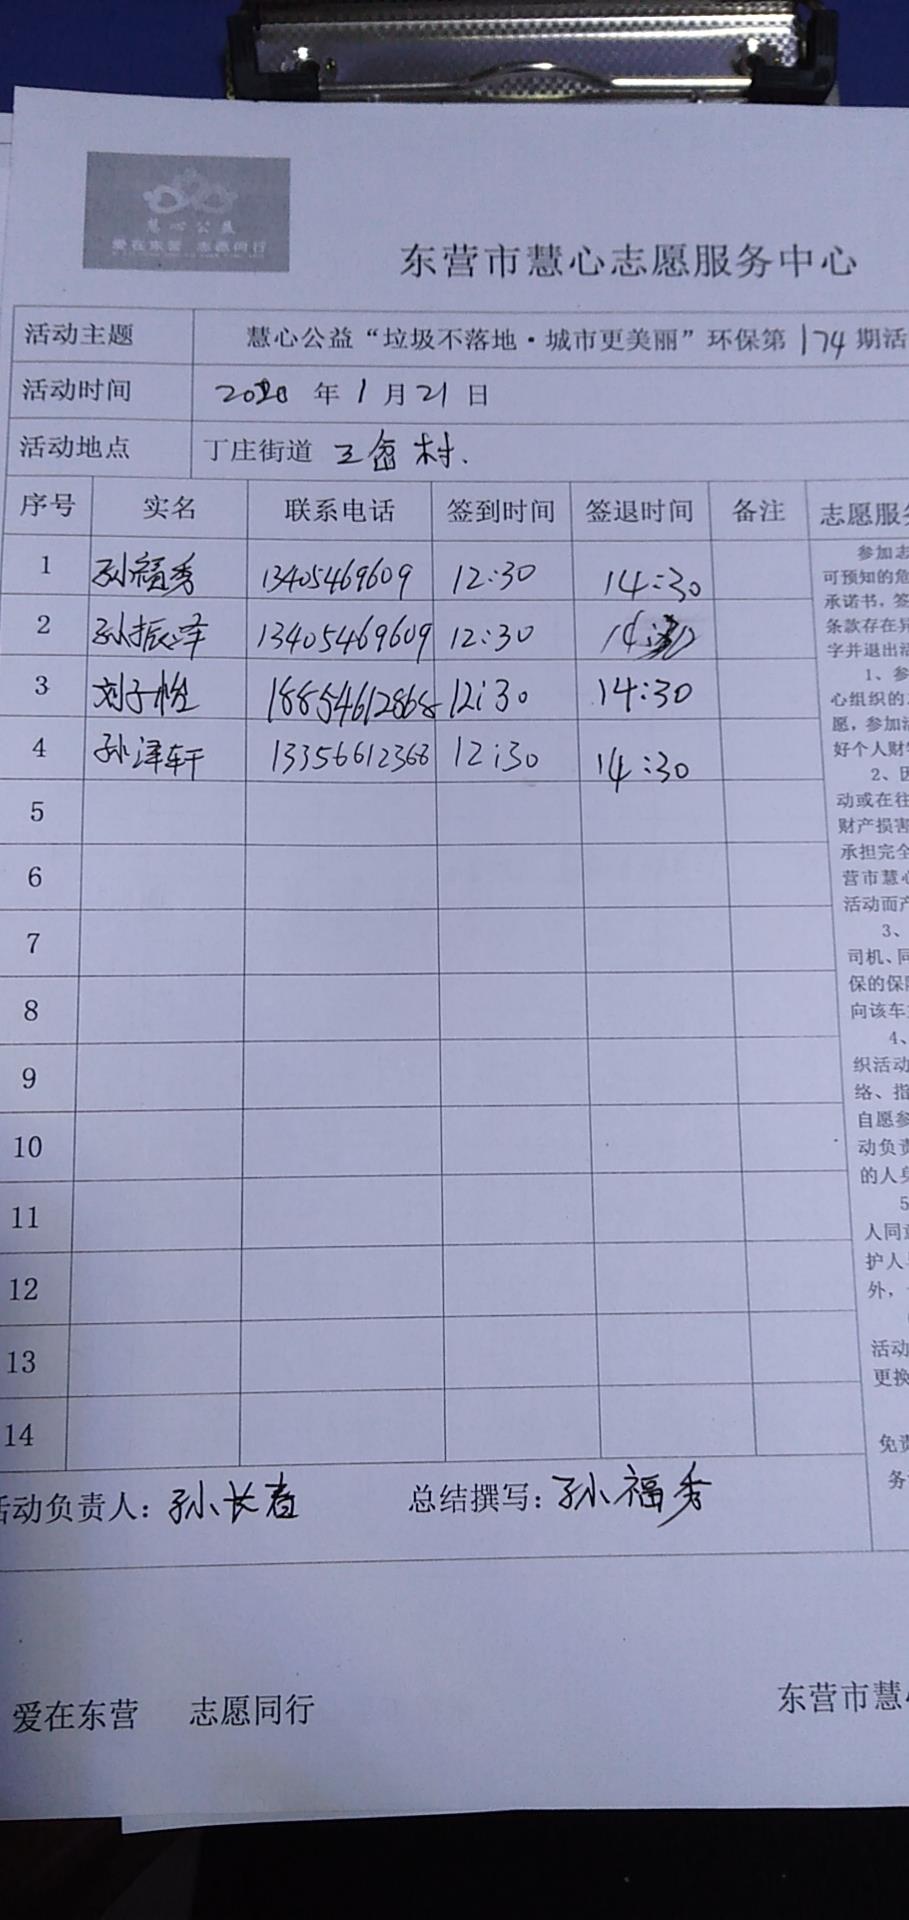 慧心公益
爱在东营 志愿同行
东营市慧心志愿服务中心
活动主题 慧心公益“垃圾不落地·城市更美丽”环保第174期活
活动时间 2020年1月21日
活动地点 丁庄街道 王岔村.
序号 实名 联系电话 签到时间 签退时间 备注 志愿服务
1 孙福秀 13405469609 12:30 14:30
2 孙振泽 13405469609 12:30
3 刘子恒 18854612868 12:30 14:30
4 孙泽轩 13356612368 12:30 14:30
5
6
7
8
9
10
11
12
13
14
参加志
可预知的危
承诺书，签
条款存在异
字并退出活
1、参
心组织的
愿，参加活
好个人财
2、因
动或在往
财产损害
承担完全
营市慧心
活动而产
3、
司机、同
保的保险
向该车
4、
织活动
络、指
自愿参
动负责
的人身
5
人同意
护人
外，
活动
更换
免责
务
活动负责人：孙长春 总结撰写：孙福秀
爱在东营 志愿同行 东营市慧心